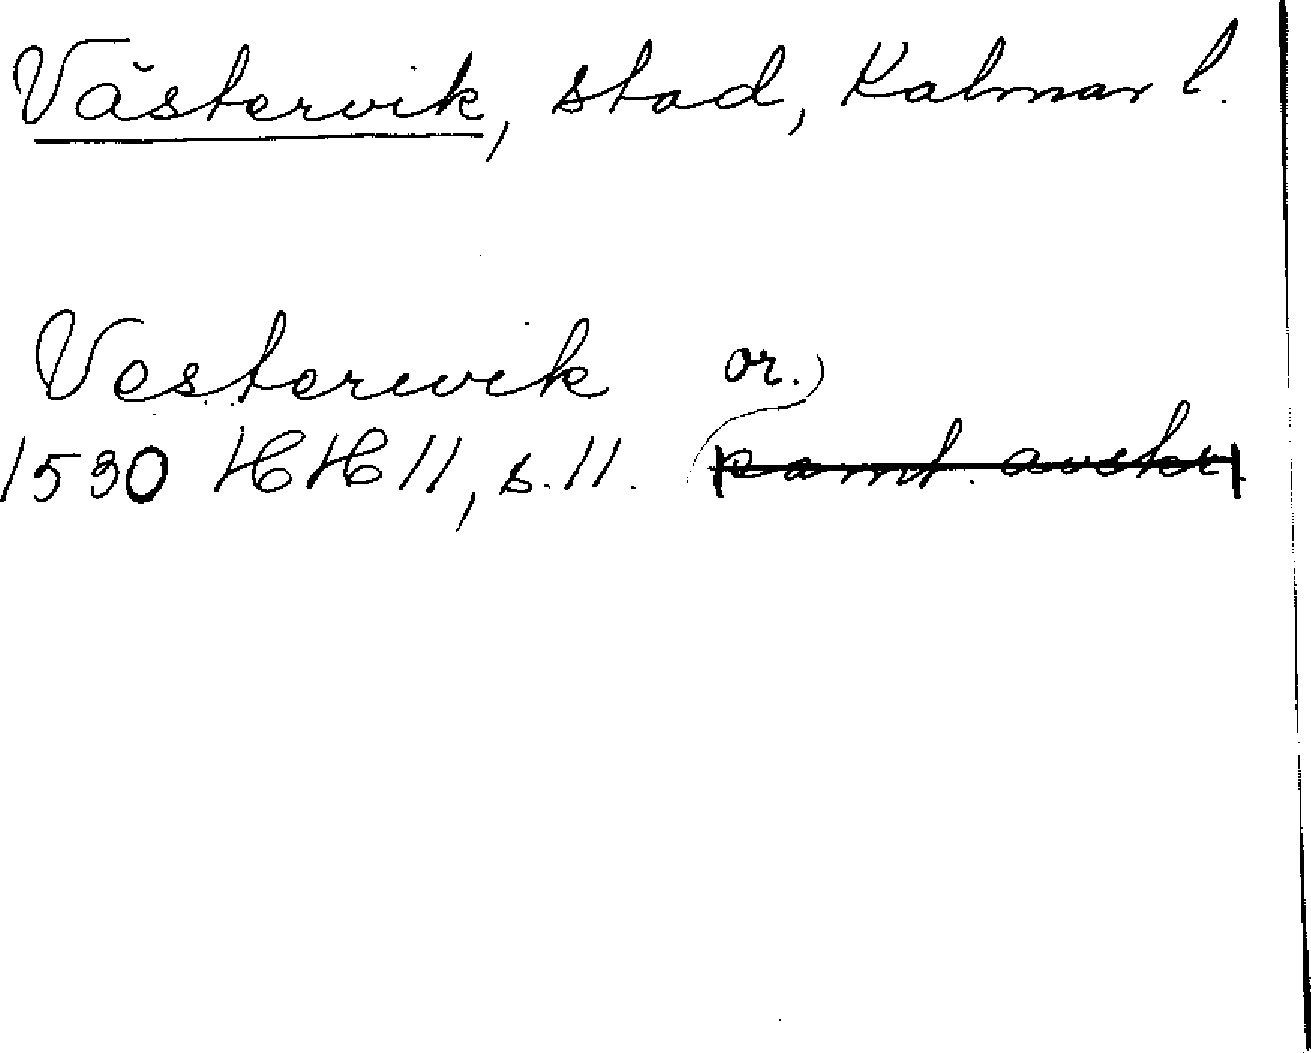 Västervik, stad, Kalmar l.
Vesterwik or.)
1530 HH 11, s. 11. samt. avskr.